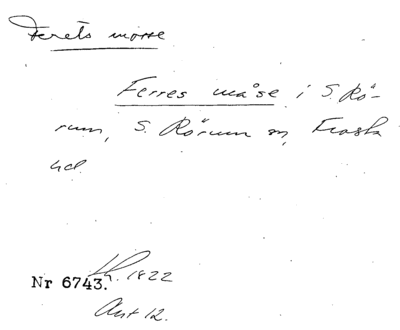 Ferets mosse
Ferres måse i S. Rö-
rum, S. Rörum sn, Frosta
hd.
Nr 6743. Lh. 1822
Akt 12.